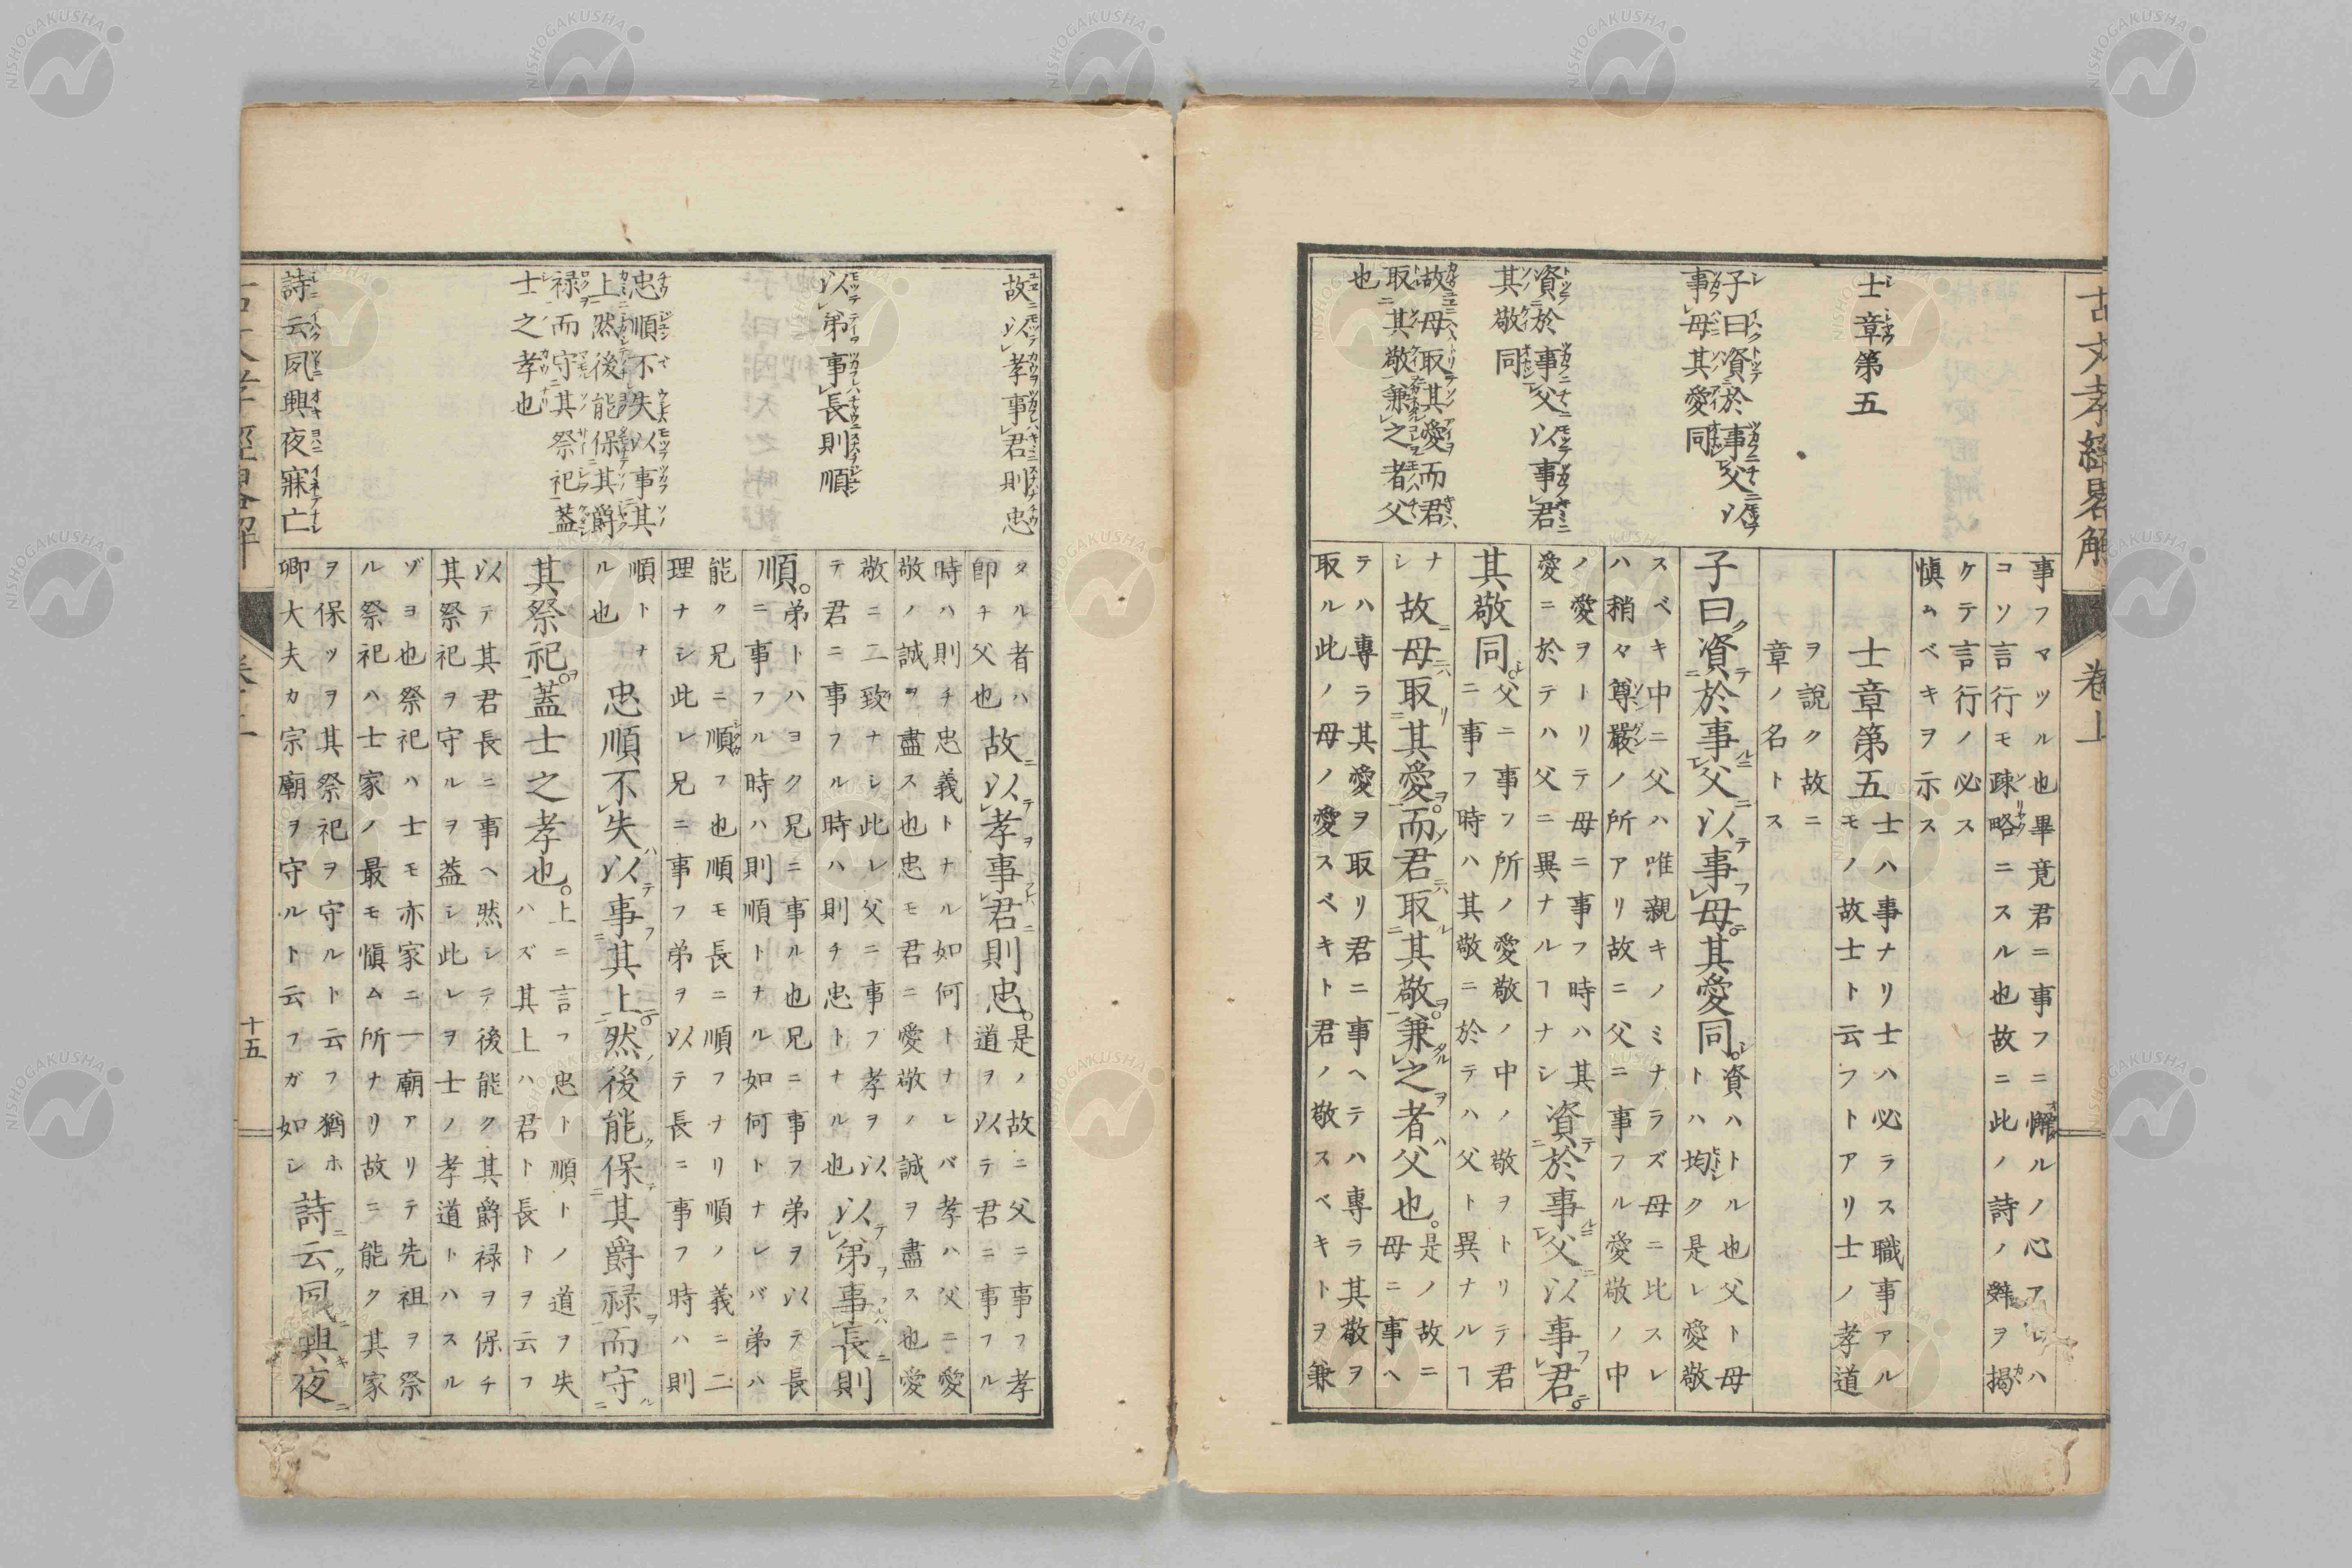 古文孝經畧解 卷上
士章第五
子曰資於事父以
事母其愛同
資於事父以事君
其敬同
故母取其愛而君
取其敬兼之者父
也
事フマツル也畢竟君ニ事フニ懈ルノ心アレハ
コソ言行モ疎略ニスル也故ニ此ノ詩ノ辤ヲ掲
ケテ言行ノ必ス
慎ムベキヲ示ス
士章第五
士ハ事ナリ士ハ必ラス職事アル
モノ故士ト云フトアリ士ノ孝道
ヲ説ク故ニ
章ノ名トス
子曰資於事父以事母其愛同。
資ハトル也父ト母
トハ均ク是レ愛敬
スベキ中ニ父ハ唯親キノミナラズ母ニ比スレ
ハ稍々尊嚴ノ所アリ故ニ父ニ事フル愛敬ノ中
ノ愛ヲトリテ母ニ事フ時ハ其
愛ニ於テハ父ニ異ナルヿナシ
資於事父以事君
其敬同。
父ニ事フ所ノ愛敬ノ中ノ敬ヲトリテ君
ニ事フ時ハ其敬ニ於テハ父ト異ナルヿ
ナ
シ
故母取其愛。而君取其敬。兼之者父也。
是ノ故ニ
母ニ事ヘ
テハ專ラ其愛ヲ取リ君ニ事ヘテハ專ラ其敬ヲ
取ル此ノ母ノ愛スベキト君ノ敬スベキトヲ兼
故以孝事君則忠
以弟事長則順
忠順不失以事其
上然後能保其爵
禄而守其祭祀蓋
士之孝也
詩云夙興夜寐亡
タル者ハ
卽チ父也
故以孝事君則忠。
是ノ故ニ父ニ事フ孝
道ヲ以テ君ニ事フル
時ハ則チ忠義トナル如何トナレバ孝ハ父ニ愛
敬ノ誠ヲ盡ス也忠モ君ニ愛敬ノ誠ヲ盡ス也愛
敬ニ二致ナシ此レ父ニ事フ孝ヲ以
テ君ニ事フル時ハ則チ忠トナル也
以弟事長則
順。
弟トハヨク兄ニ事ル也兄ニ事フ弟ヲ以テ長
ニ事フル時ハ則順トナル如何トナレバ弟ハ
能ク兄ニ順フ也順モ長ニ順フナリ順ノ義ニ二
理ナシ此レ兄ニ事フ弟ヲ以テ長ニ事フ時ハ則
順トナ
ル也
忠順不失以事其上。然後能保其爵禄而守
其祭祀。蓋士之孝也。
上ニ言フ忠ト順トノ道ヲ失
ハズ其上ハ君ト長トヲ云フ
以テ其君長ニ事ヘ然シテ後能ク其爵禄ヲ保チ
其祭祀ヲ守ルヲ蓋シ此レヲ士ノ孝道トハスル
ゾヨ也祭祀ハ士モ亦家ニ一廟アリテ先祖ヲ祭
ル祭祀ハ士家ノ最モ愼ム所ナリ故ニ能ク其家
ヲ保ツヲ其祭祀ヲ守ルト云フ猶ホ
卿大夫カ宗廟ヲ守ルト云フガ如シ
詩云夙興夜
十五